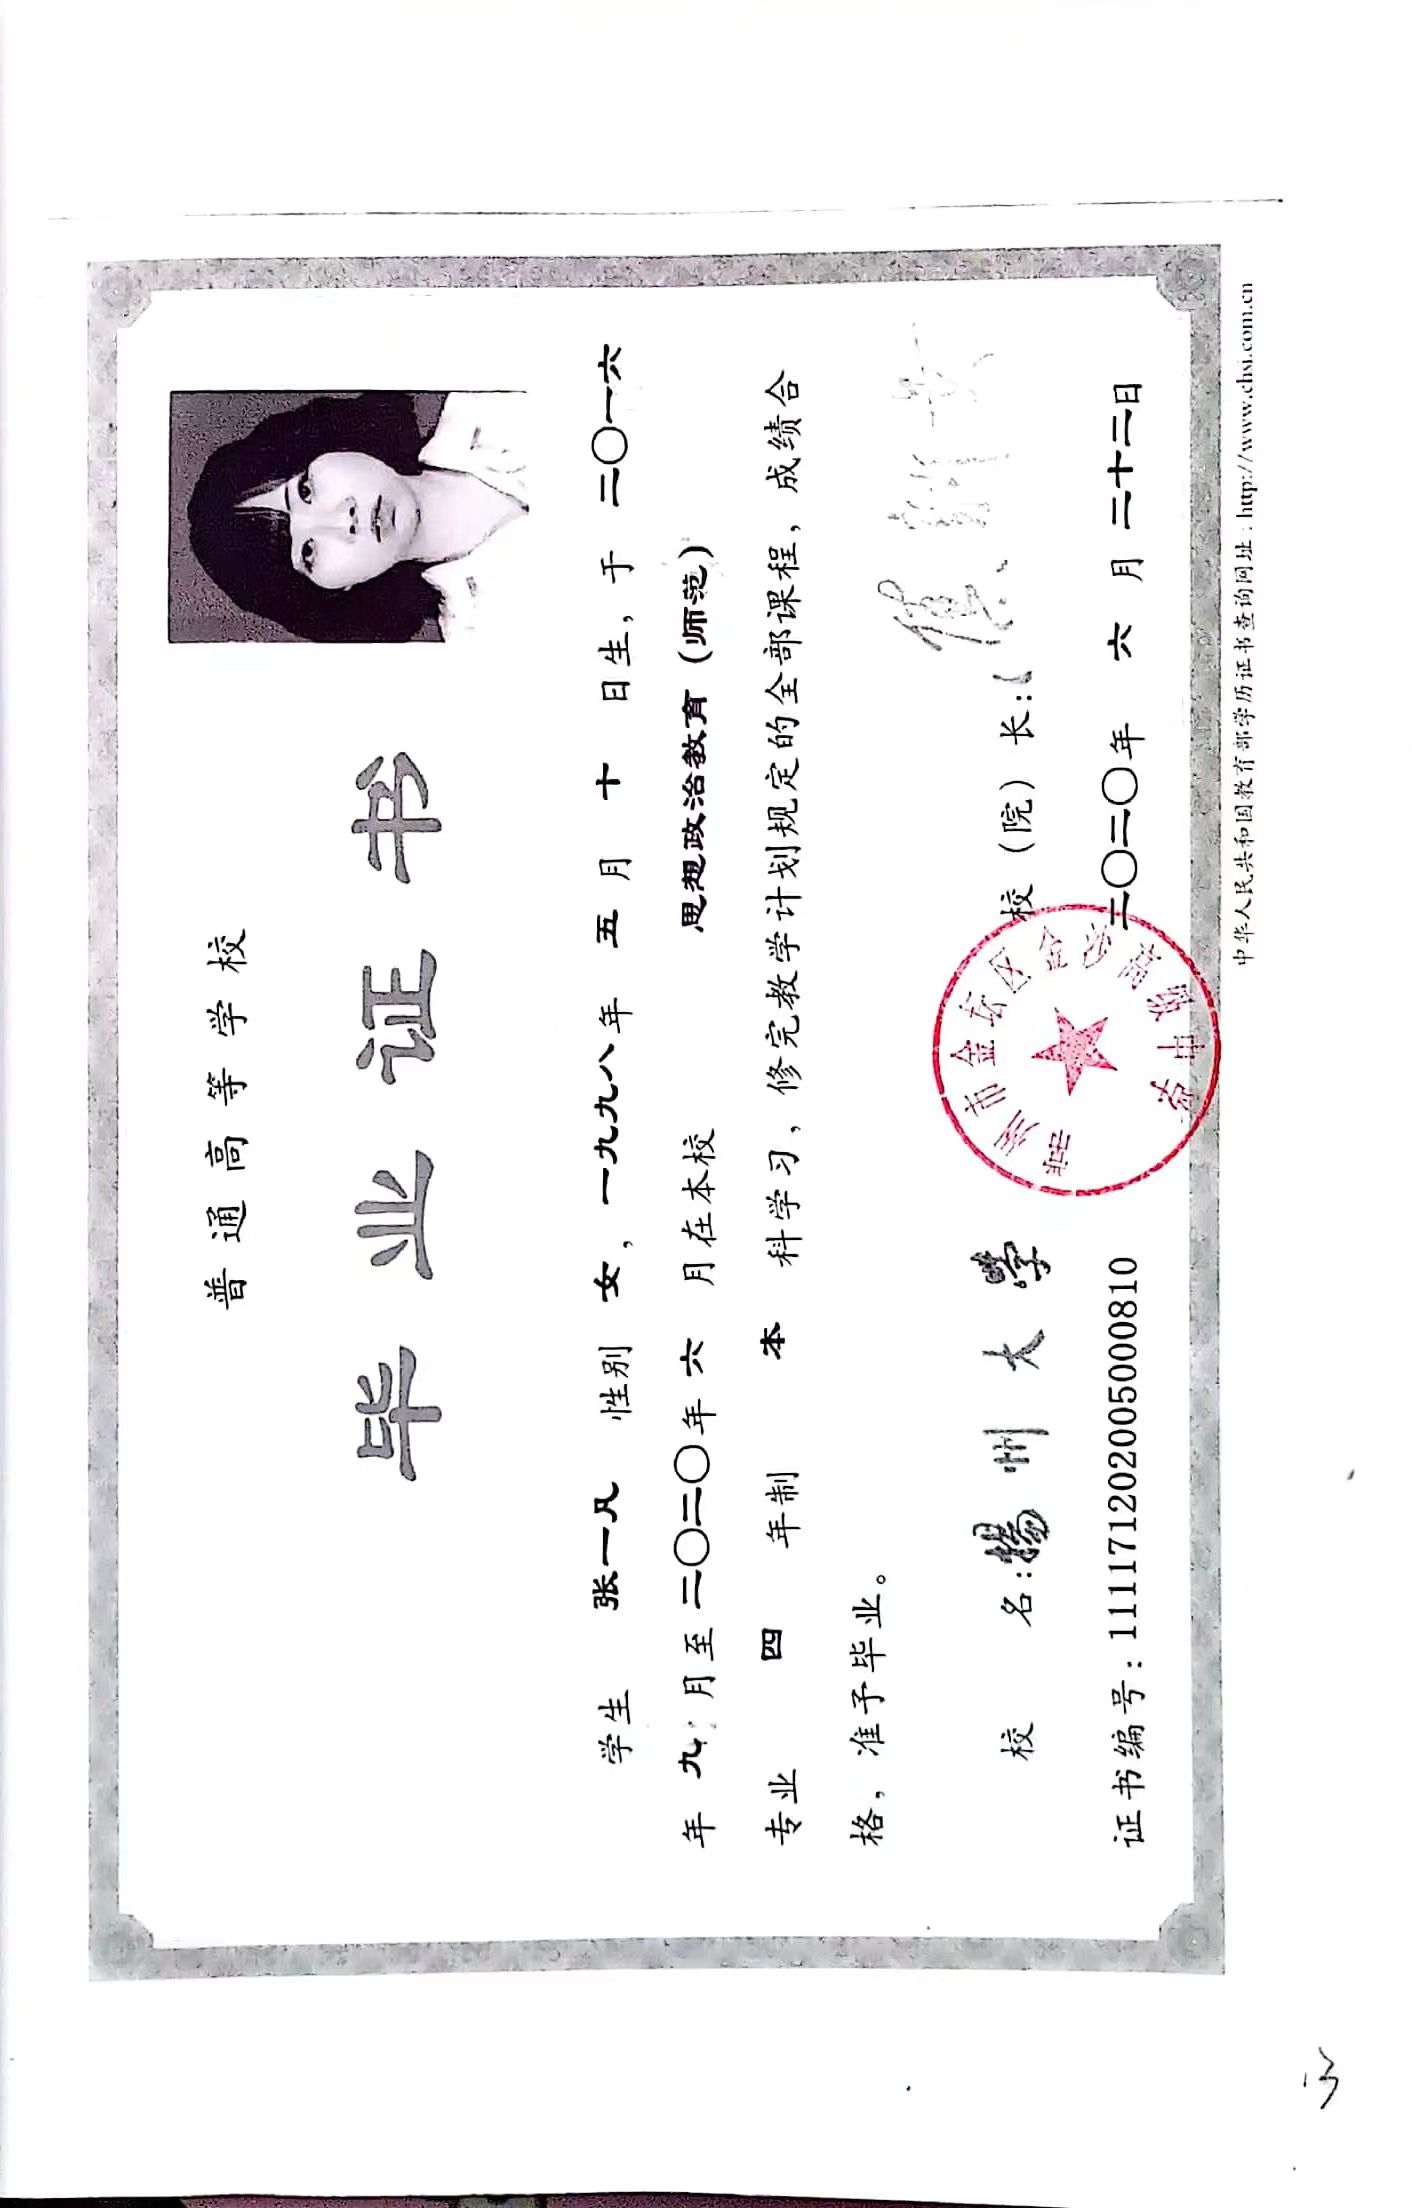 普通高等学校
毕业证书
学生 张一凡 性别 女，一九九八年 五 月 十 日生，于 二〇一六
年 九 月至二〇二〇年 六 月在本校 思想政治教育（师范）
专业 四 年制 本 科学习，修完教学计划规定的全部课程，成绩合
格，准予毕业。
校 名：揚州大學 校（院）长：焦新安
证书编号：111171202005000810 二〇二〇年 六 月 二十二日
市金坛区
中华人民共和国教育部学历证书查询网址：http://www.chsi.com.cn
13